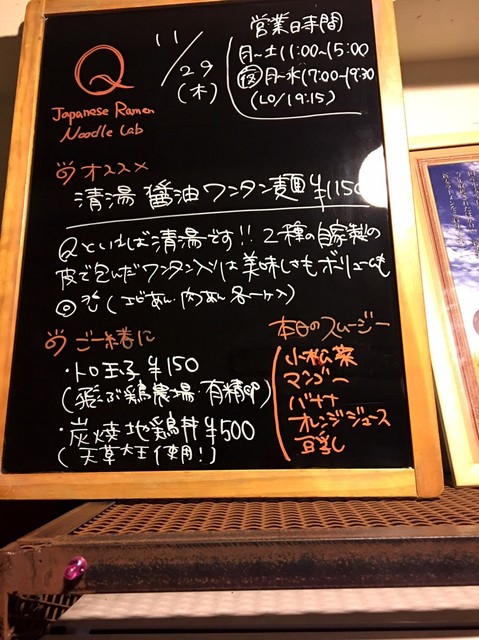 Q
Japanese Ramen
Noodle Lab
11/29
(木)
営業時間
月〜土11:00〜15:00
夜月〜水17:00〜19:30
(LO/19:15)
オススメ
清湯 醤油ワンタン麺 ¥1150
Qといえば清湯です!! 2種の自家製の
皮で包んだワンタン入りは美味しさもボリュームも
◎です(エビあん、肉あん各一ケ入)
ご一緒に
・トロ玉子 ¥150
(飛ぶ鶏農場・有精卵)
・炭焼地鶏丼 ¥500
(天草大王使用!)
本日のスムージー
小松菜
マンゴー
バナナ
オレンジジュース
豆乳